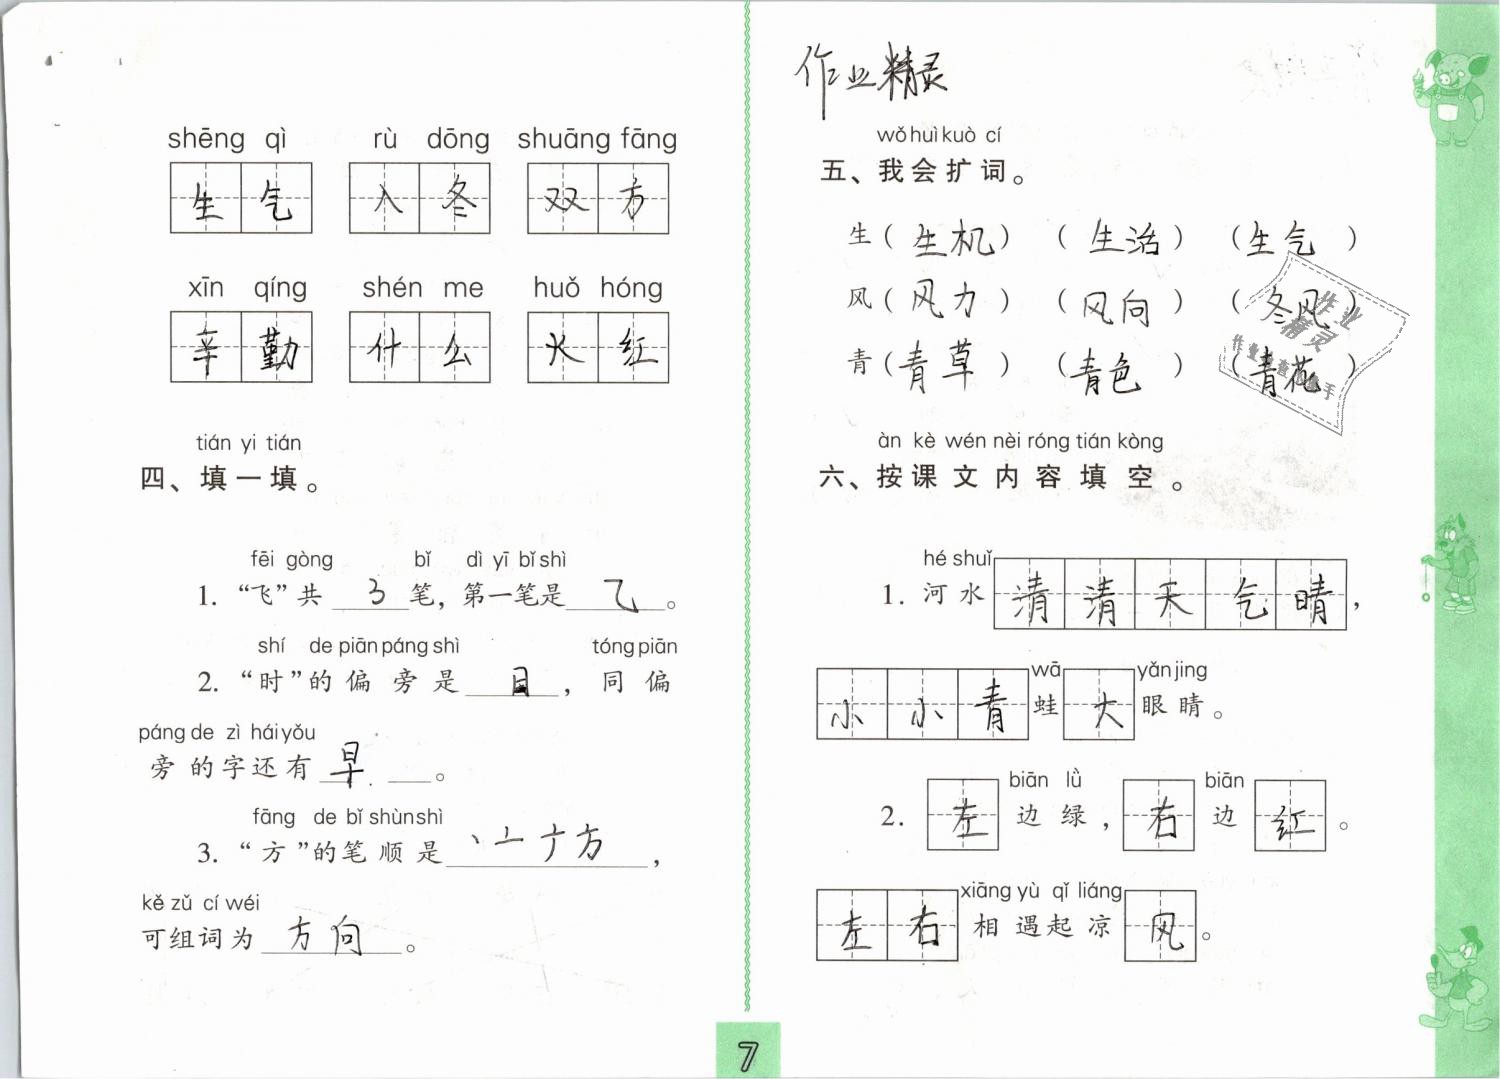 shēng qì rù dōng shuāng fāng
生气 入冬 双方
xīn qíng shén me huǒ hóng
辛勤 什么 火红
tián yi tián
四、填一填。
fēi gòng bǐ dì yī bǐ shì
1. “飞”共 3 笔，第一笔是 乙 。
shí de piān páng shì tóng piān
2. “时”的偏旁是 日 ，同偏
páng de zì hái yǒu
旁的字还有 早 。
fāng de bǐ shùn shì
3. “方”的笔顺是 丶亠亍方 ，
kě zǔ cí wéi
可组词为 方向 。
作业精灵
wǒ huì kuò cí
五、我会扩词。
生（生机）（生活）（生气）
风（风力）（风向）（冬风）
青（青草）（青色）（青花）
作业
精灵
àn kè wén nèi róng tián kòng
六、按课文内容填空。
hé shuǐ
1. 河水清清天气晴，
wā yǎn jing
小小青蛙大眼睛。
biān lǜ biān
2. 左边绿，右边红。
xiāng yù qǐ liáng
左右相遇起凉风。
7